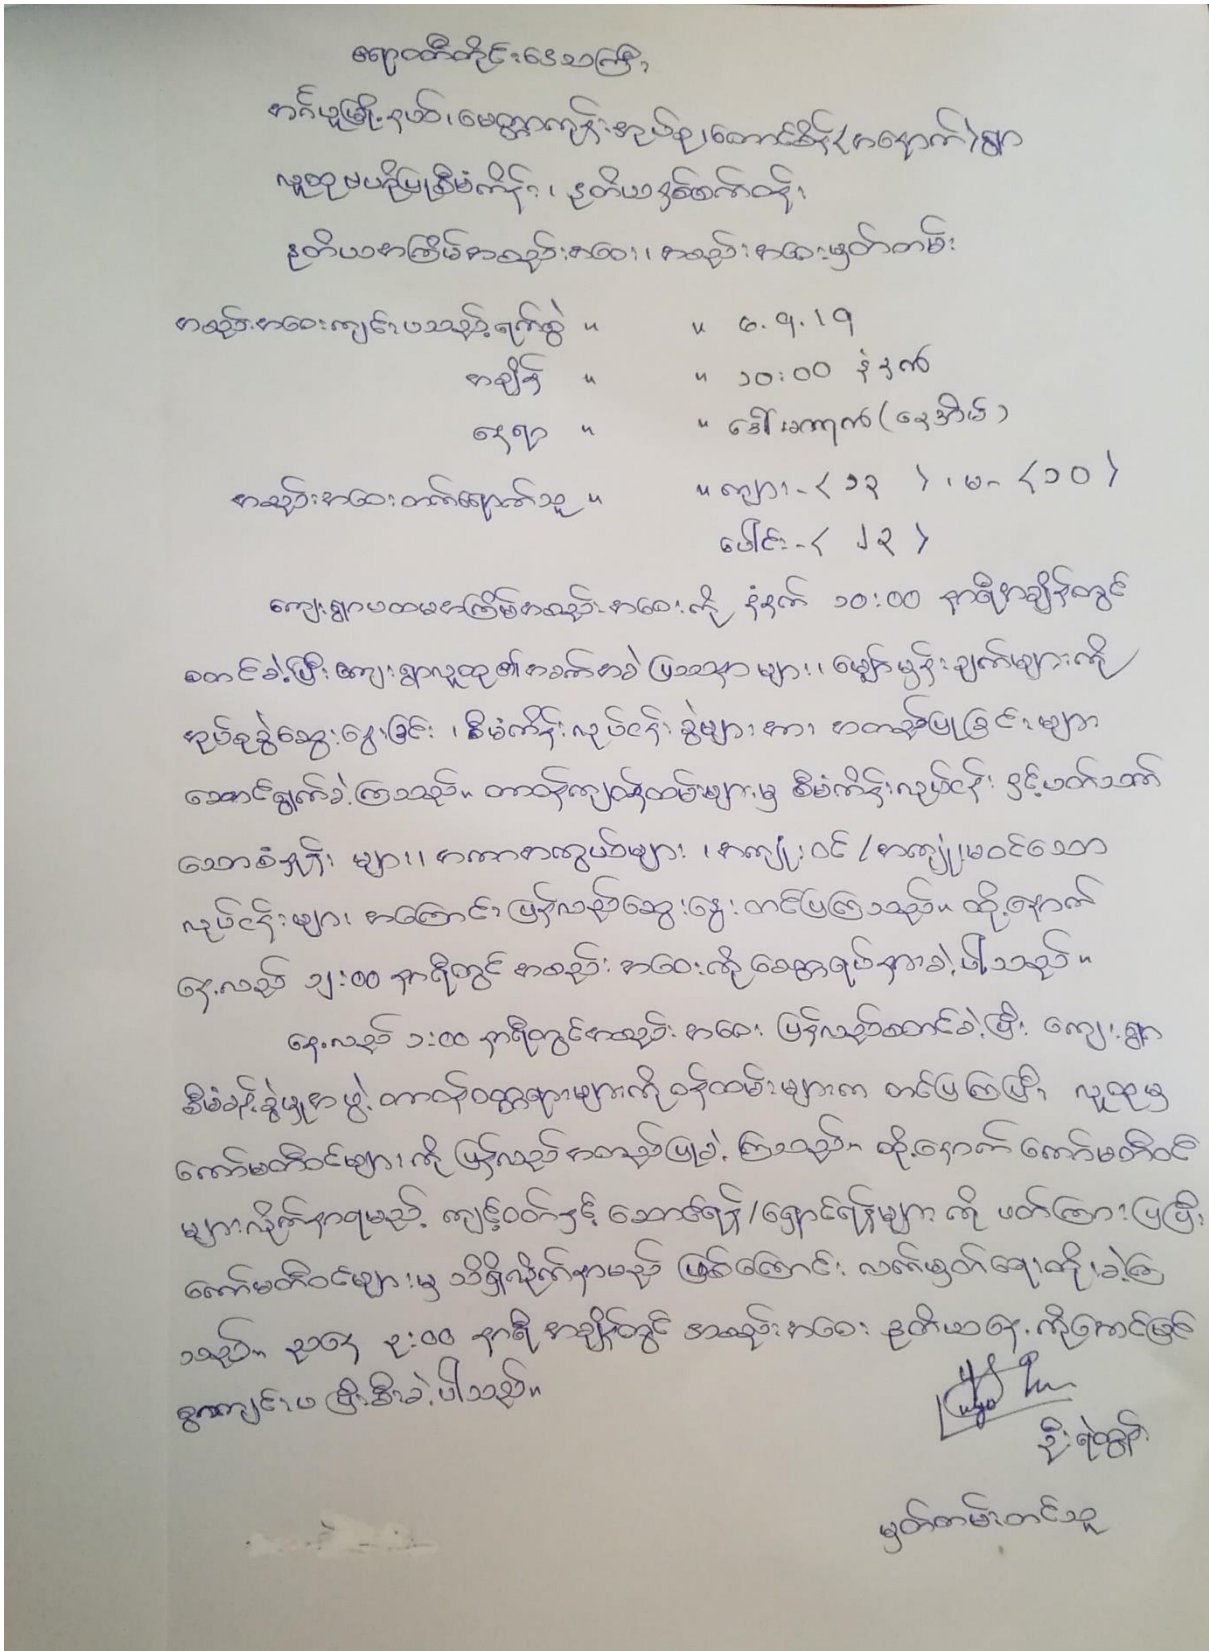 ဧရာဝတီတိုင်းဒေသကြီး
အင်္ဂပူမြို့နယ်၊ မေတ္တာကုန်းအုပ်စု၊ တောင်စိန်(အနောက်)ရွာ
လူထုဗဟိုပြုစီမံကိန်း၊ ဒုတိယနှစ်ဖက်ထိုး
ဒုတိယအကြိမ်အစည်းအဝေး၊ အစည်းအဝေးမှတ်တမ်း
အစည်းအဝေးကျင်းပသည့်ရက်စွဲ ။ ။ ၆.၅.၁၅
အချိန် ။ ။ ၁၀:၀၀ နံနက်
နေရာ ။ ။ ဒေါ် (နေအိမ်)
အစည်းအဝေးတက်ရောက်သူ ။ ။ ကျား-〈၁၃〉၊ မ-〈၁၀〉
ပေါင်း-〈၂၃〉
ကျေးရွာပထမအကြိမ်အစည်းအဝေးကို နံနက် ၁၀:၀၀ နာရီအချိန်တွင်
စတင်ခဲ့ပြီး ကျေးရွာလူထု၏အခက်အခဲပြဿနာများ၊ မျှော်မှန်းချက်များကို
အုပ်စုခွဲဆွေးနွေးခြင်း၊ စီမံကိန်းလုပ်ငန်းခွဲများအား အတည်ပြုခြင်းများ
ဆောင်ရွက်ခဲ့ကြသည်။ တာဝန်ကျဝန်ထမ်းများမှ စီမံကိန်းလုပ်ငန်း နှင့်ပတ်သက်
သောစံနှုန်း များ၊ အကာအကွယ်များ ၊ အကျုံးဝင်/အကျုံးမဝင်သော
လုပ်ငန်းများ အကြောင်း ပြန်လည်ဆွေးနွေး တင်ပြကြသည်။ ထို့နောက်
နေ့လည် ၁၂:၀၀ နာရီတွင် အစည်း အဝေးကို ခေတ္တရပ်နားခဲ့ပါသည်။
နေ့လည် ၁:၀၀ နာရီတွင်အစည်း အဝေး ပြန်လည်စတင်ခဲ့ပြီး ကျေးရွာ
စီမံခန့်ခွဲမှုအဖွဲ့ တာဝန်ဝတ္တရားများကို ဝန်ထမ်းများက တင်ပြကြပြီး လူထုမှ
ကော်မတီဝင်များကို ပြန်လည်အတည်ပြုခဲ့ ကြသည်။ ထို့နောက် ကော်မတီဝင်
များလိုက်နာရမည့် ကျင့်ဝတ်နှင့် ဆောင်ရန်/ရှောင်ရန်များ ကို ဖတ်ကြားပြပြီး
ကော်မတီဝင်များမှ သိရှိလိုက်နာမည် ဖြစ်ကြောင်း လက်မှတ်ရေးထိုးခဲ့ကြ
သည်။ ညနေ ၃:၀၀ နာရီ အချိန်တွင် အစည်းအဝေး ဒုတိယနေ့ကိုအောင်မြင်
စွာကျင်းပ ပြီးစီးခဲ့ပါသည်။
ဦးရဲထွန်း
မှတ်တမ်းတင်သူ